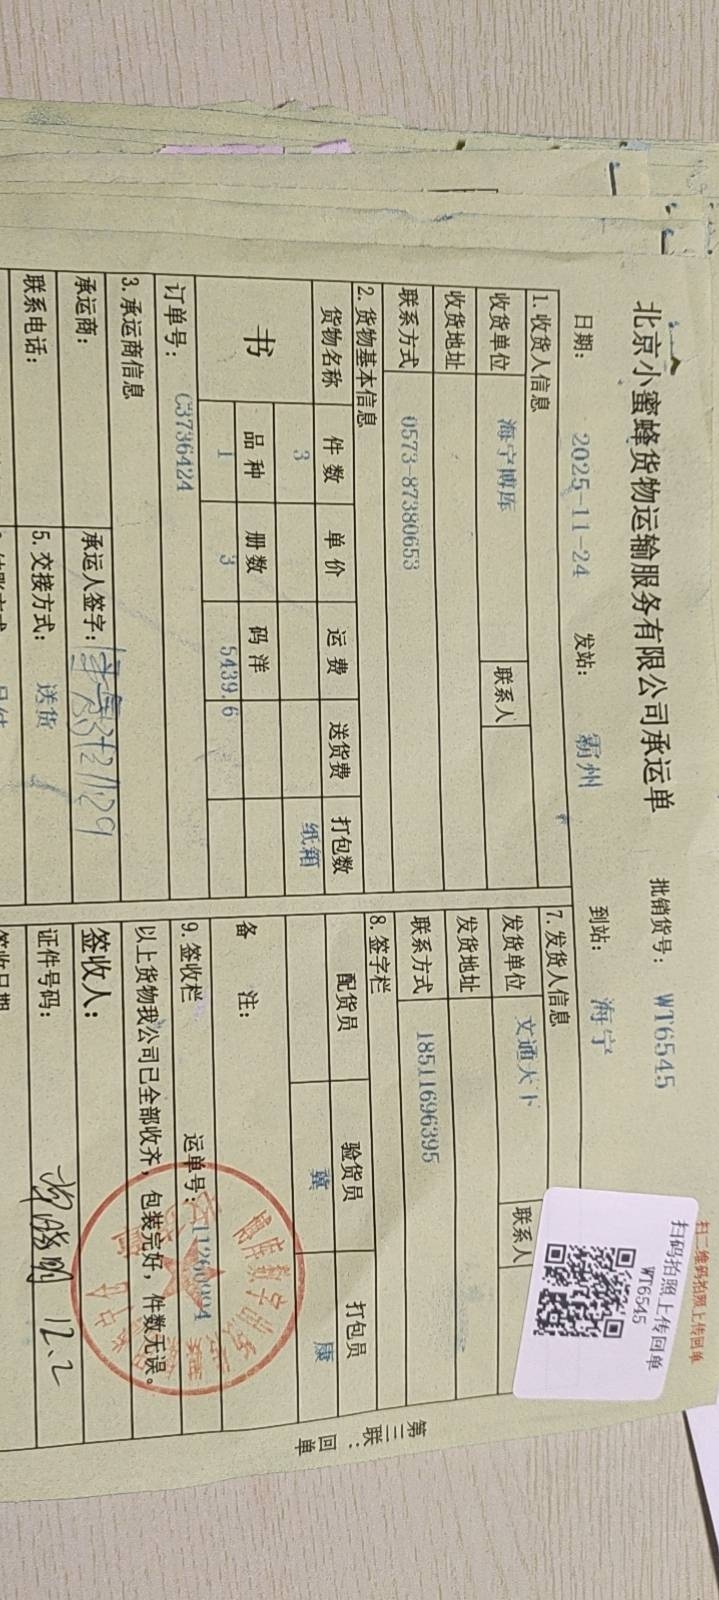 北京小蜜蜂货物运输服务有限公司承运单
批销货号： WT6545
扫二维码拍照上传回单
扫码拍照上传回单
WT6545
日期： 2025-11-24 发站： 霸州 到站： 海宁
1. 收货人信息
收货单位 海宁博库 联系人
收货地址
联系方式 0573-87380653
2. 货物基本信息
货物名称 件数 单价 运费 送货费 打包数
书 3 纸箱
品种 册数 码洋
1 3 5439.6
订单号： C3736424
3. 承运商信息
承运商： 承运人签字：
联系电话： 5. 交接方式： 送货
7. 发货人信息
发货单位 文通天下 联系人
发货地址
联系方式 18511696395
8. 签字栏
配货员 验货员 打包员
冀 康
备 注：
9. 签收栏 运单号：
以上货物我公司已全部收齐，包装完好，件数无误。
签收人：
证件号码： 12.2
签收日期
第三联：回单